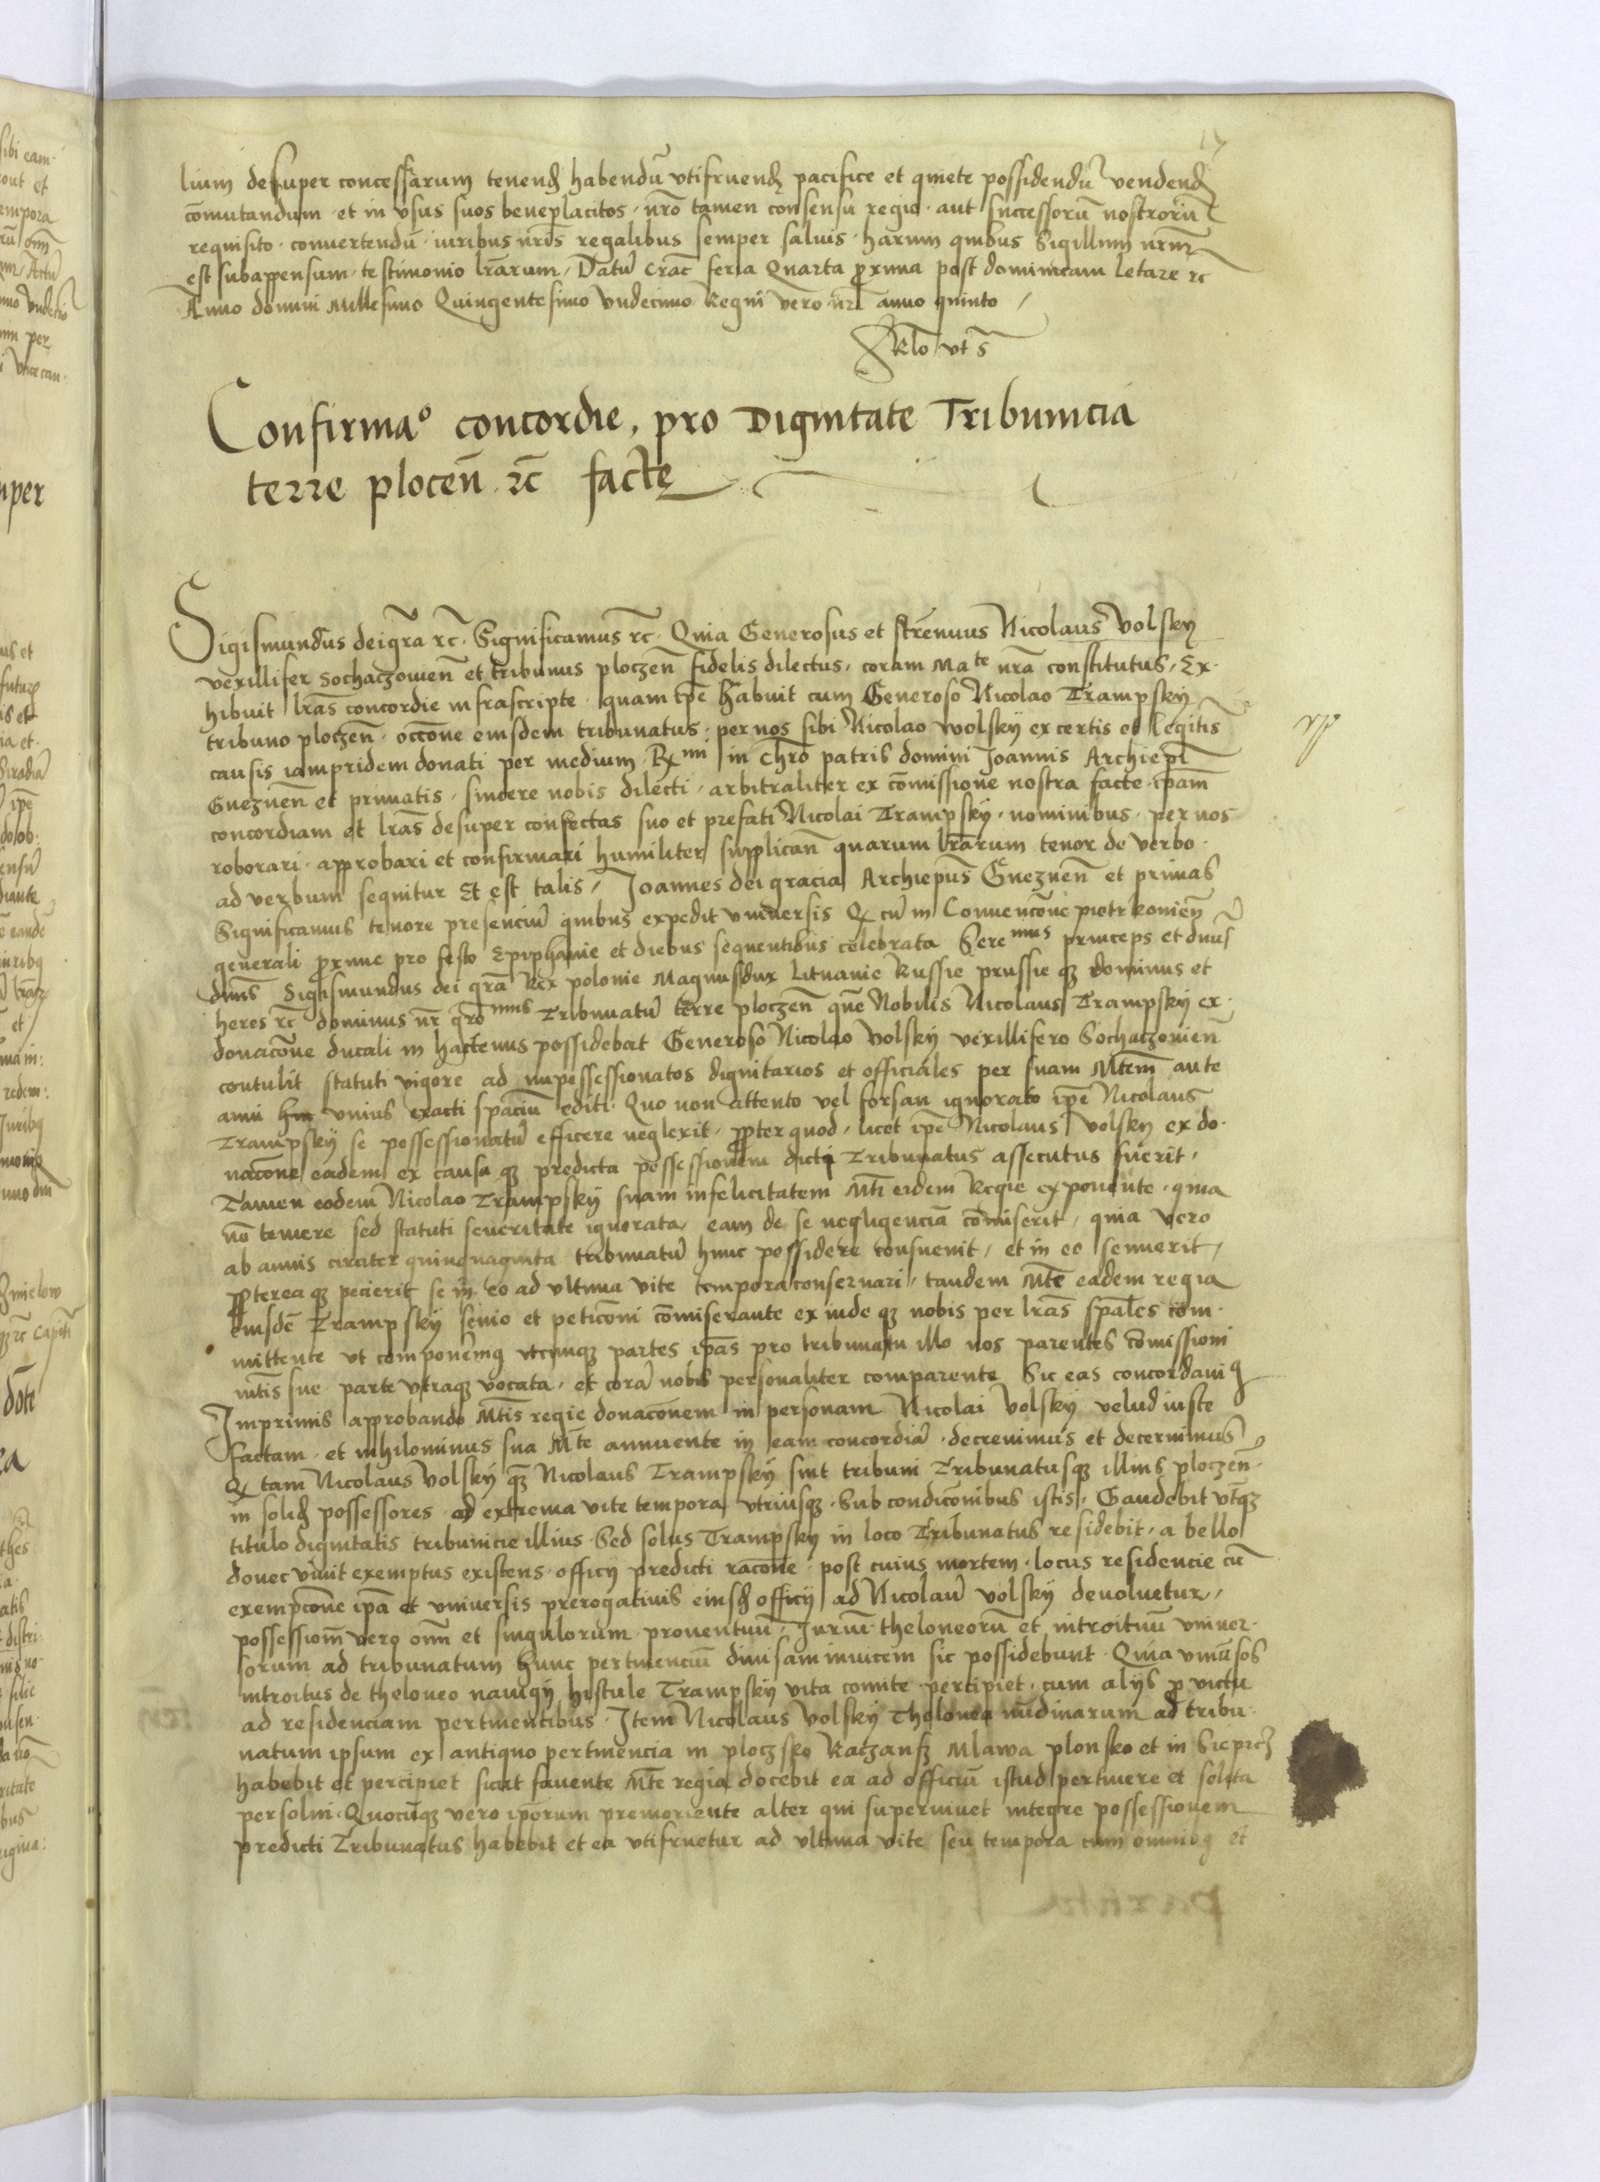 17
lium desuper concessarum tenend habendũ vtifruend pacifice et quiete possidendũ vendend
cõmutandum et in vsus suos beneplacitos nr̃o tamen consensu regio aut successorũ nostrorũ
requisito conuertendũ iuribus nr̃is regalibus semper saluis harum quibus Sigillum nr̃m
est subappensum testimonio lr̃arum Datũ Crac̃ feria Quarta proxima post dominicam letare rc̃
Anno domini Millesimo Quingentesimo Vndecimo Regni vero nr̃i anno quinto
Rl̃o vt s̃
Confirmaᵒ concordie, pro Dignitate Tribunicia
terre plocen̄ rc̃ facte
Sigismundus dei gr̃a rc̃ Significamus rc̃ Quia Generosus et strenuus Nicolaus Volsky
vexillifer Sochaczouien̄ et tribunus ploczen̄ fidelis dilectus coram Maᵗᵉ nr̃a constitutus Ex
hibuit lr̃as concordie infrascripte quam tp̃e habuit cum Generoso Nicolao Trampsky
tribuno ploczen̄ occõne eiusdem tribunatus per nos sibi Nicolao wolsky ex certis et legitis
causis iampridem donati per medium Rᵐⁱ in chr̃o patris domini Joannis Archiepĩ
Gneznen̄ et primatis sincere nobis dilecti arbitraliter ex cõmissione nostra facte ip̃am
concordiam et lr̃as desuper confectas suo et prefati Nicolai Trampsky nominibus per nos
roborari approbari et confirmari humiliter supplican̄ quarum lr̃arum tenor de verbo
ad verbum sequitur Et est talis Joannes dei gracia Archiepũs Gneznen̄ et primas
Significamus tenore presenciũ quibus expedit vniuersis Q cũ in Conuencõne piotrkouien̄
generali proxime pro festo Epiphanie et diebus sequentibus celebrata Sereᵐᵘˢ princeps et dñus
dñus Sigismundus dei gr̃a Rex polonie Magnusdux Lituanie Russie prussie q3 dominus et
heres rc̃ dominus nr̃ gr̃oᵐᵘˢ Tribunatũ terre ploczen̄ quẽ Nobilis Nicolaus Trampsky ex
donacõne ducali in hactenus possidebat Generoso Nicolao Volsky vexillifero Sochaczouien̄
contulit statuti vigore ad inpossessionatos dignitarios et officiales per suam Mtẽm ante
anni vnius exacti spaciũ editi Quo non attento vel forsan ignorato ip̃e Nicolaus
Trampsky se possessionatũ efficere neglexit propter quod licet ip̃e Nicolaus Volsky ex do
nacõne eadem ex causa q3 predicta possessionem dicti Tribunatus assecutus fuerit
Tamen eodem Nicolao Trampsky suam infelicitatem Mti eidem Regie exponente quia
nõ temere sed statuti seueritate ignorata eam de se negligenciã cõmiserit quia vero
ab annis circiter quinquaginta tribunatũ hunc possidere consueuit et in eo senuerit
propterea q3 pecierit se in eo ad vltima vite tempora conseruari tandem Mtẽ eadem regia
eiusdẽ Trampsky senio et peticõni cõmiserante exinde q3 nobis per lr̃as sp̃ales com
mittente vt componemus vtcunq3 partes ip̃as pro tribunatu illo nos parentes cõmissioni
mtis sue parte vtraq3 vocata et corã nobis personaliter comparente Sic eas concordauimus
Imprimis approbando Mtis regie donacõnem in personam Nicolai Volsky velud iuste
factam et nihilominus sua Mtẽ annuente in eam concordiã decreuimus et decernimus
Q tam Nicolaus Volsky q̃3 Nicolaus Trampsky sint tribuni Tribunatusq3 illius ploczen̄
in solid possessores ad extrema vite tempora vtriusq3 Sub condicõnibus istis Gaudebit vterq3
titulo dignitatis tribunicie illius Sed solus Trampsky in loco Tribunatus residebit a bello
donec viuit exemptus existens officij predicti racõne post cuius mortem locus residencie cũ
exempcõne ip̃a et vniuersis prerogatiuis eiusd officij ad Nicolaũ Volsky deuoluetur
possessionẽ vero om̃ et singulorum prouentuũ Jurium theloneorũ et introituũ vniuer
sorum ad tribunatum hunc pertinenciũ diuisam inuicem sic possidebunt Quia vniuersos
introitus de theloneo nauigij histule Trampsky vita comite percipiet cum alijs pro victu
ad residenciam pertinentibus Item Nicolaus Volsky Thelonea nũdinarum ad tribu
natum ipsum ex antiquo pertinencia in ploczsko Raczans3 Mlawa plonsko et in Sieprcz
habebit et percipiet sicut fauente Mtẽ regia docebit ea ad officiũ istud pertinere et solita
persolui Quocũq3 vero ip̃orum premoriente alter qui superuiuet integre possessionem
predicti Tribunatus habebit et ea vtifruetur ad vltima vite seu tempora cum omnibus et